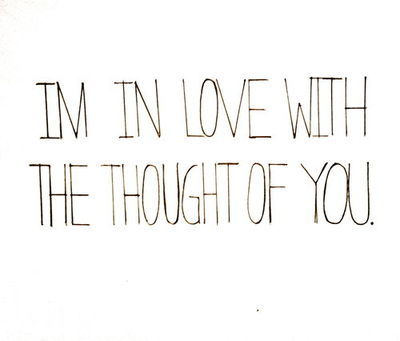 IM IN LOVE WITH
THE THOUGHT OF YOU.